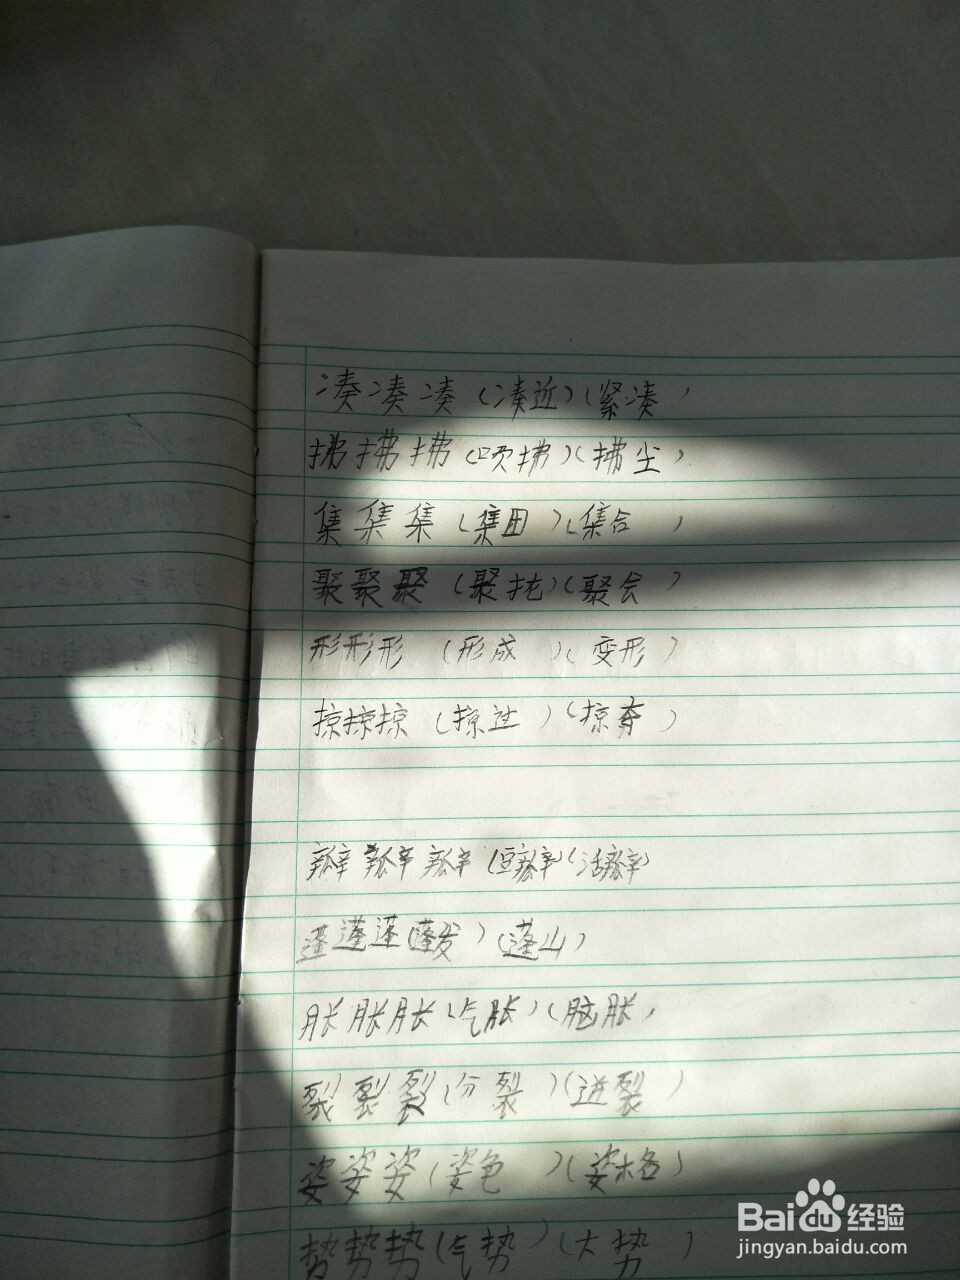 凑凑凑(凑近)(紧凑)
拂拂拂(吹拂)(拂尘)
集集集(集团)(集合)
聚聚聚(聚拢)(聚会)
形形形(形成)(变形)
掠掠掠(掠过)(掠夺)
瓣瓣瓣(豆瓣)(活瓣)
蓬蓬蓬(蓬发)(蓬山)
胀胀胀(气胀)(脑胀)
裂裂裂(分裂)(迸裂)
姿姿姿(姿色)(姿格)
势势势(气势)(大势)
Baidu经验
jingyan.baidu.com